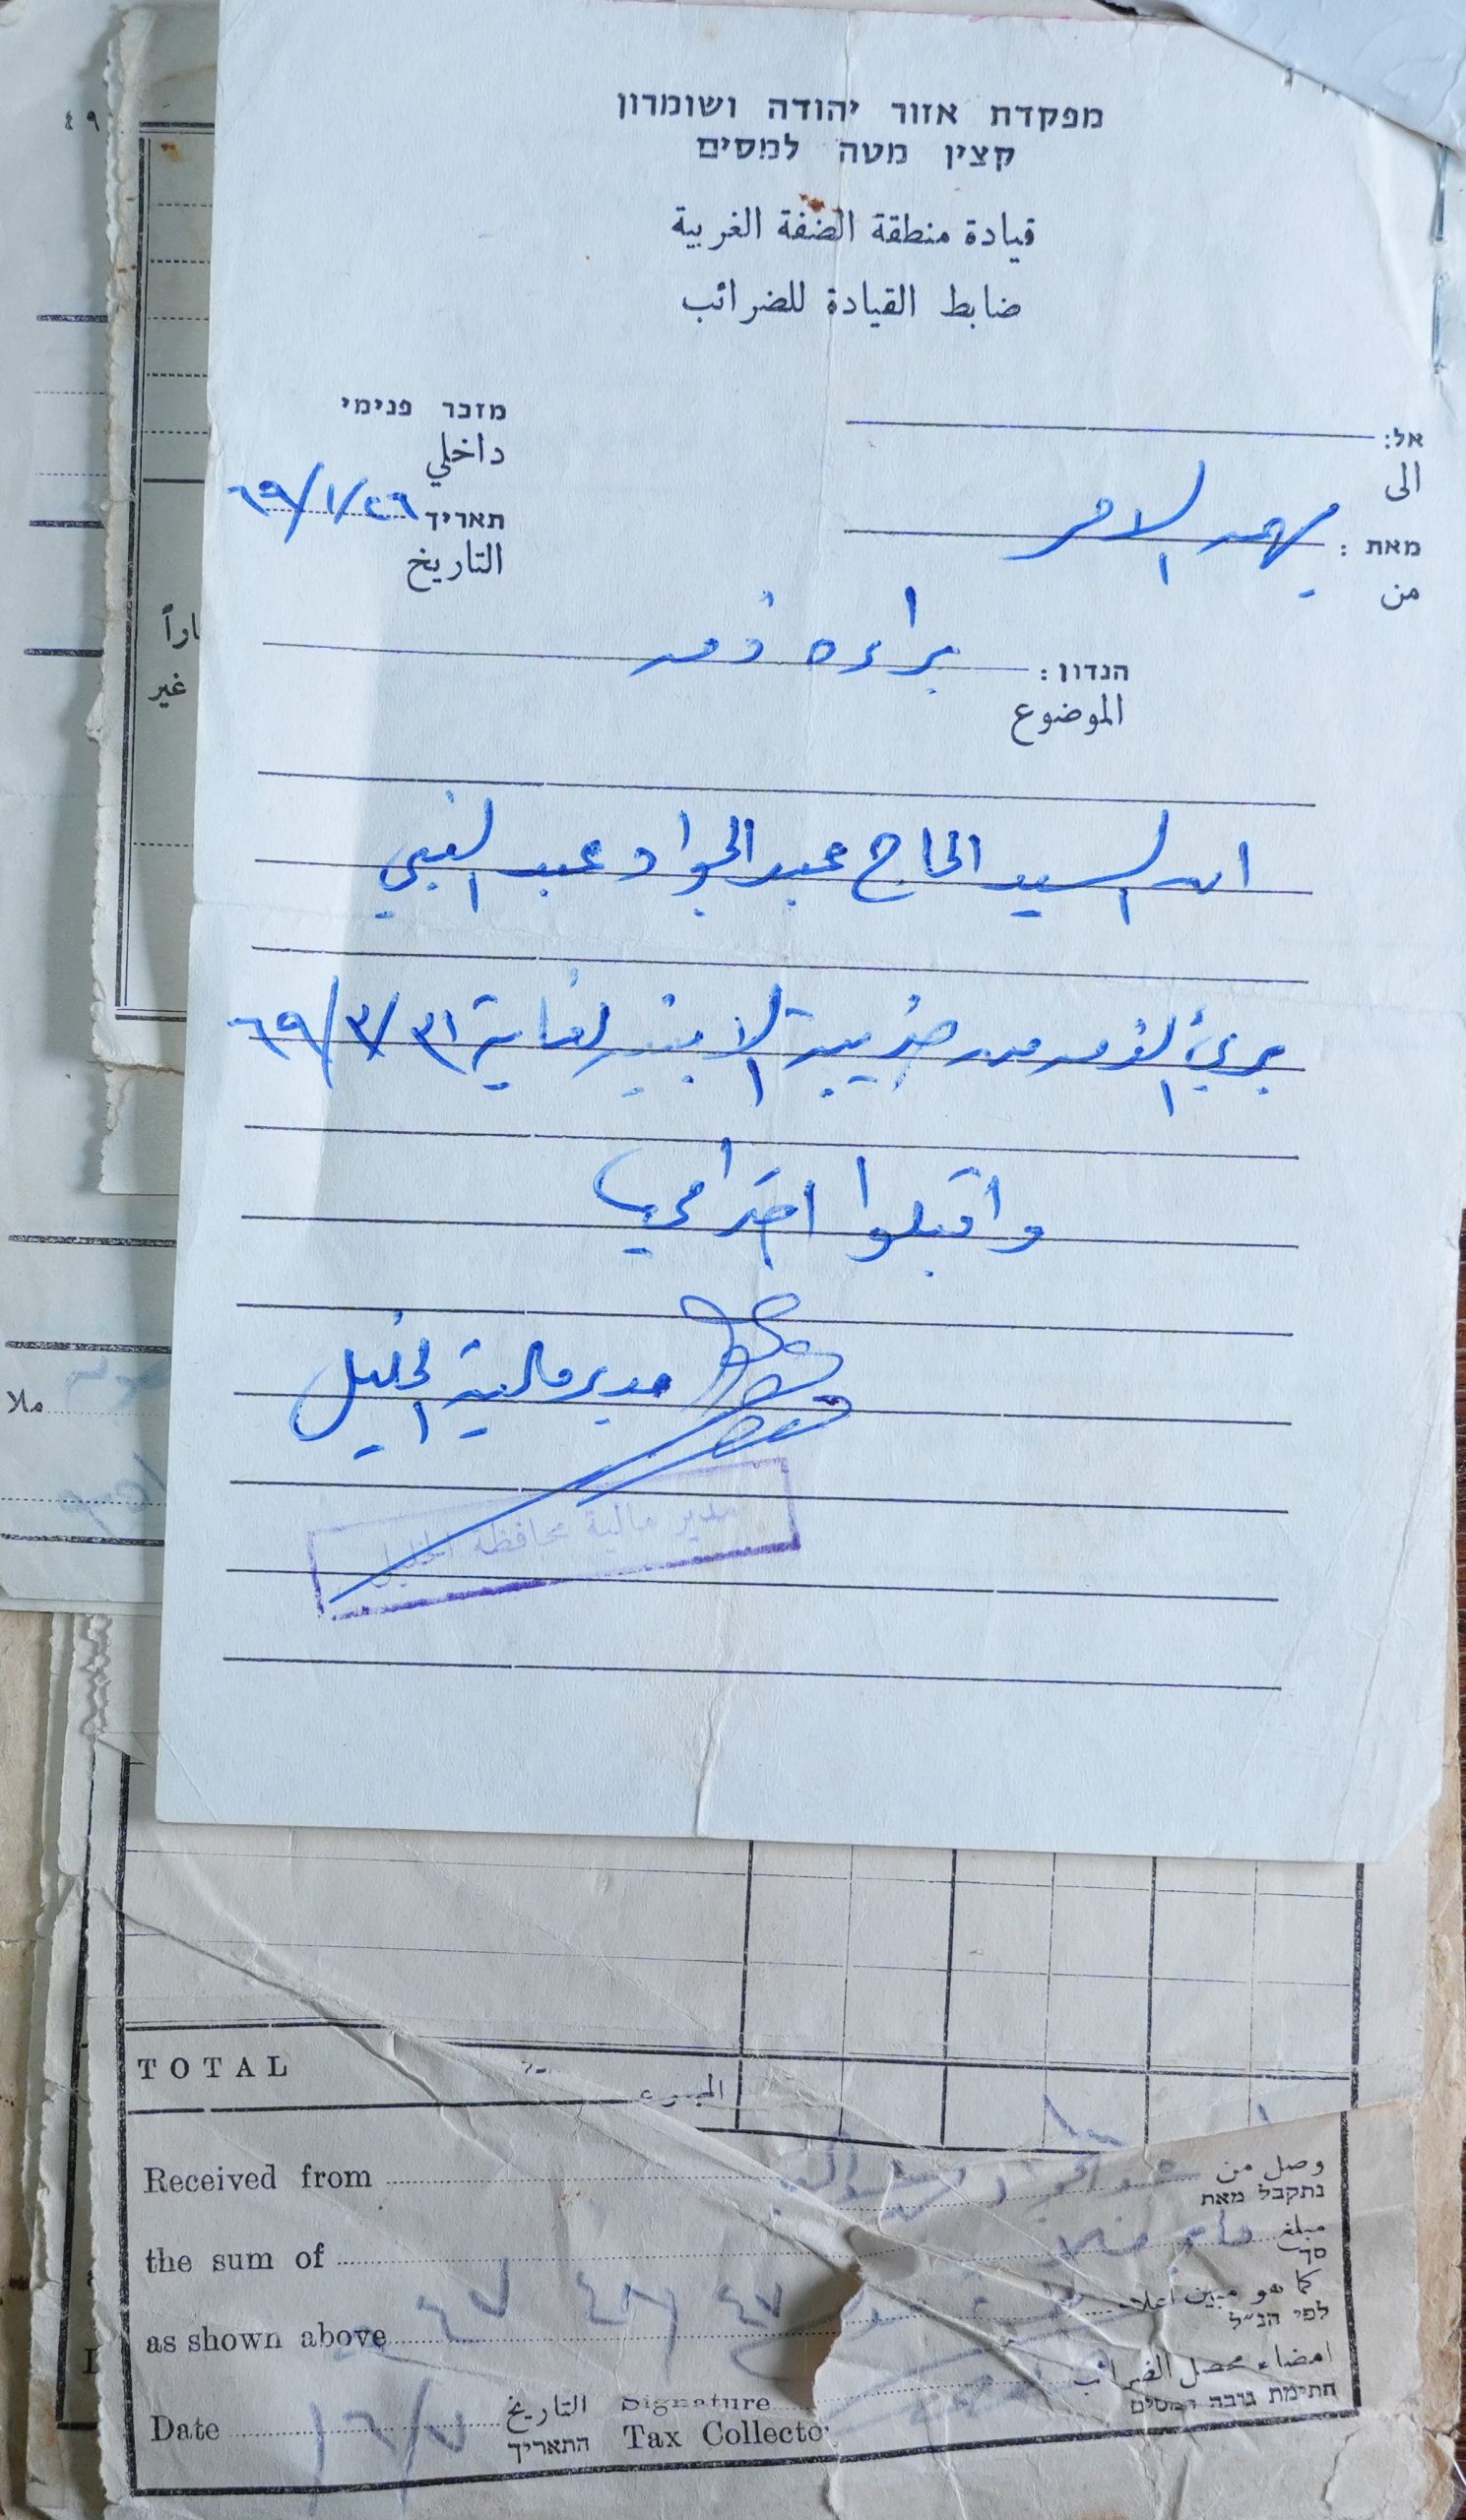 מפקדת אזור יהודה ושומרון
קצין מטה למסים
قيادة منطقة الضفة الغربية
ضابط القيادة للضرائب
אל:
الى
מזכר פנימי
داخلي
מאת:
من
يهمه الامر
תאריך
٢٦/١/٦٩
التاريخ
הנדון:
براءة ذمه
الموضوع
ان السيد الحاج عبد الجواد عبد النبي
بريء الذمه من ضريبة الابنيه لغاية ٣١/٣/٦٩
واقبلوا احترامي
مدير مالية الخليل
مدير مالية محافظة الخليل
٤٩
اراً
غير
ملا
TOTAL
المجموع
Received from
وصل من
נתקבל מאת
the sum of
مبلغ
סך
as shown above
كما هو مبين اعلاه
לפי הנ״ל
٤٧
امضاء محصل الضرائب
חתימת גובה המסים
Date
التاريخ
התאריך
Signature
Tax Collector